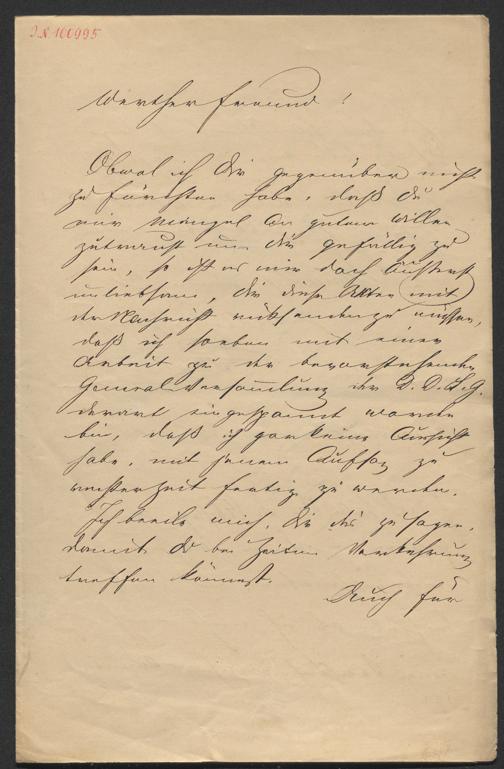 I.N. 100995
Werther Freund!
Obwol ich Dir gegenüber nicht
zu fürchten habe, daß Du
mir Mangel an gutem Willen
zutraust um Dir gefällig zu
sein, so ist es mir doch äußerst
unliebsam, Dir diese Akten mit
der Nachricht rücksenden zu müssen,
daß ich soeben mit einer
Arbeit zu der bevorstehenden
General-Versammlung der D. D. G.
derart eingespannt worden
bin, daß ich gar keine Aussicht
habe, mit jenem Aufsaz zu
rechter Zeit fertig zu werden.
Ich beeile mich, Dir dis zu sagen,
damit Du bei Zeiten Vorkehrung
treffen könnest.
Auch für